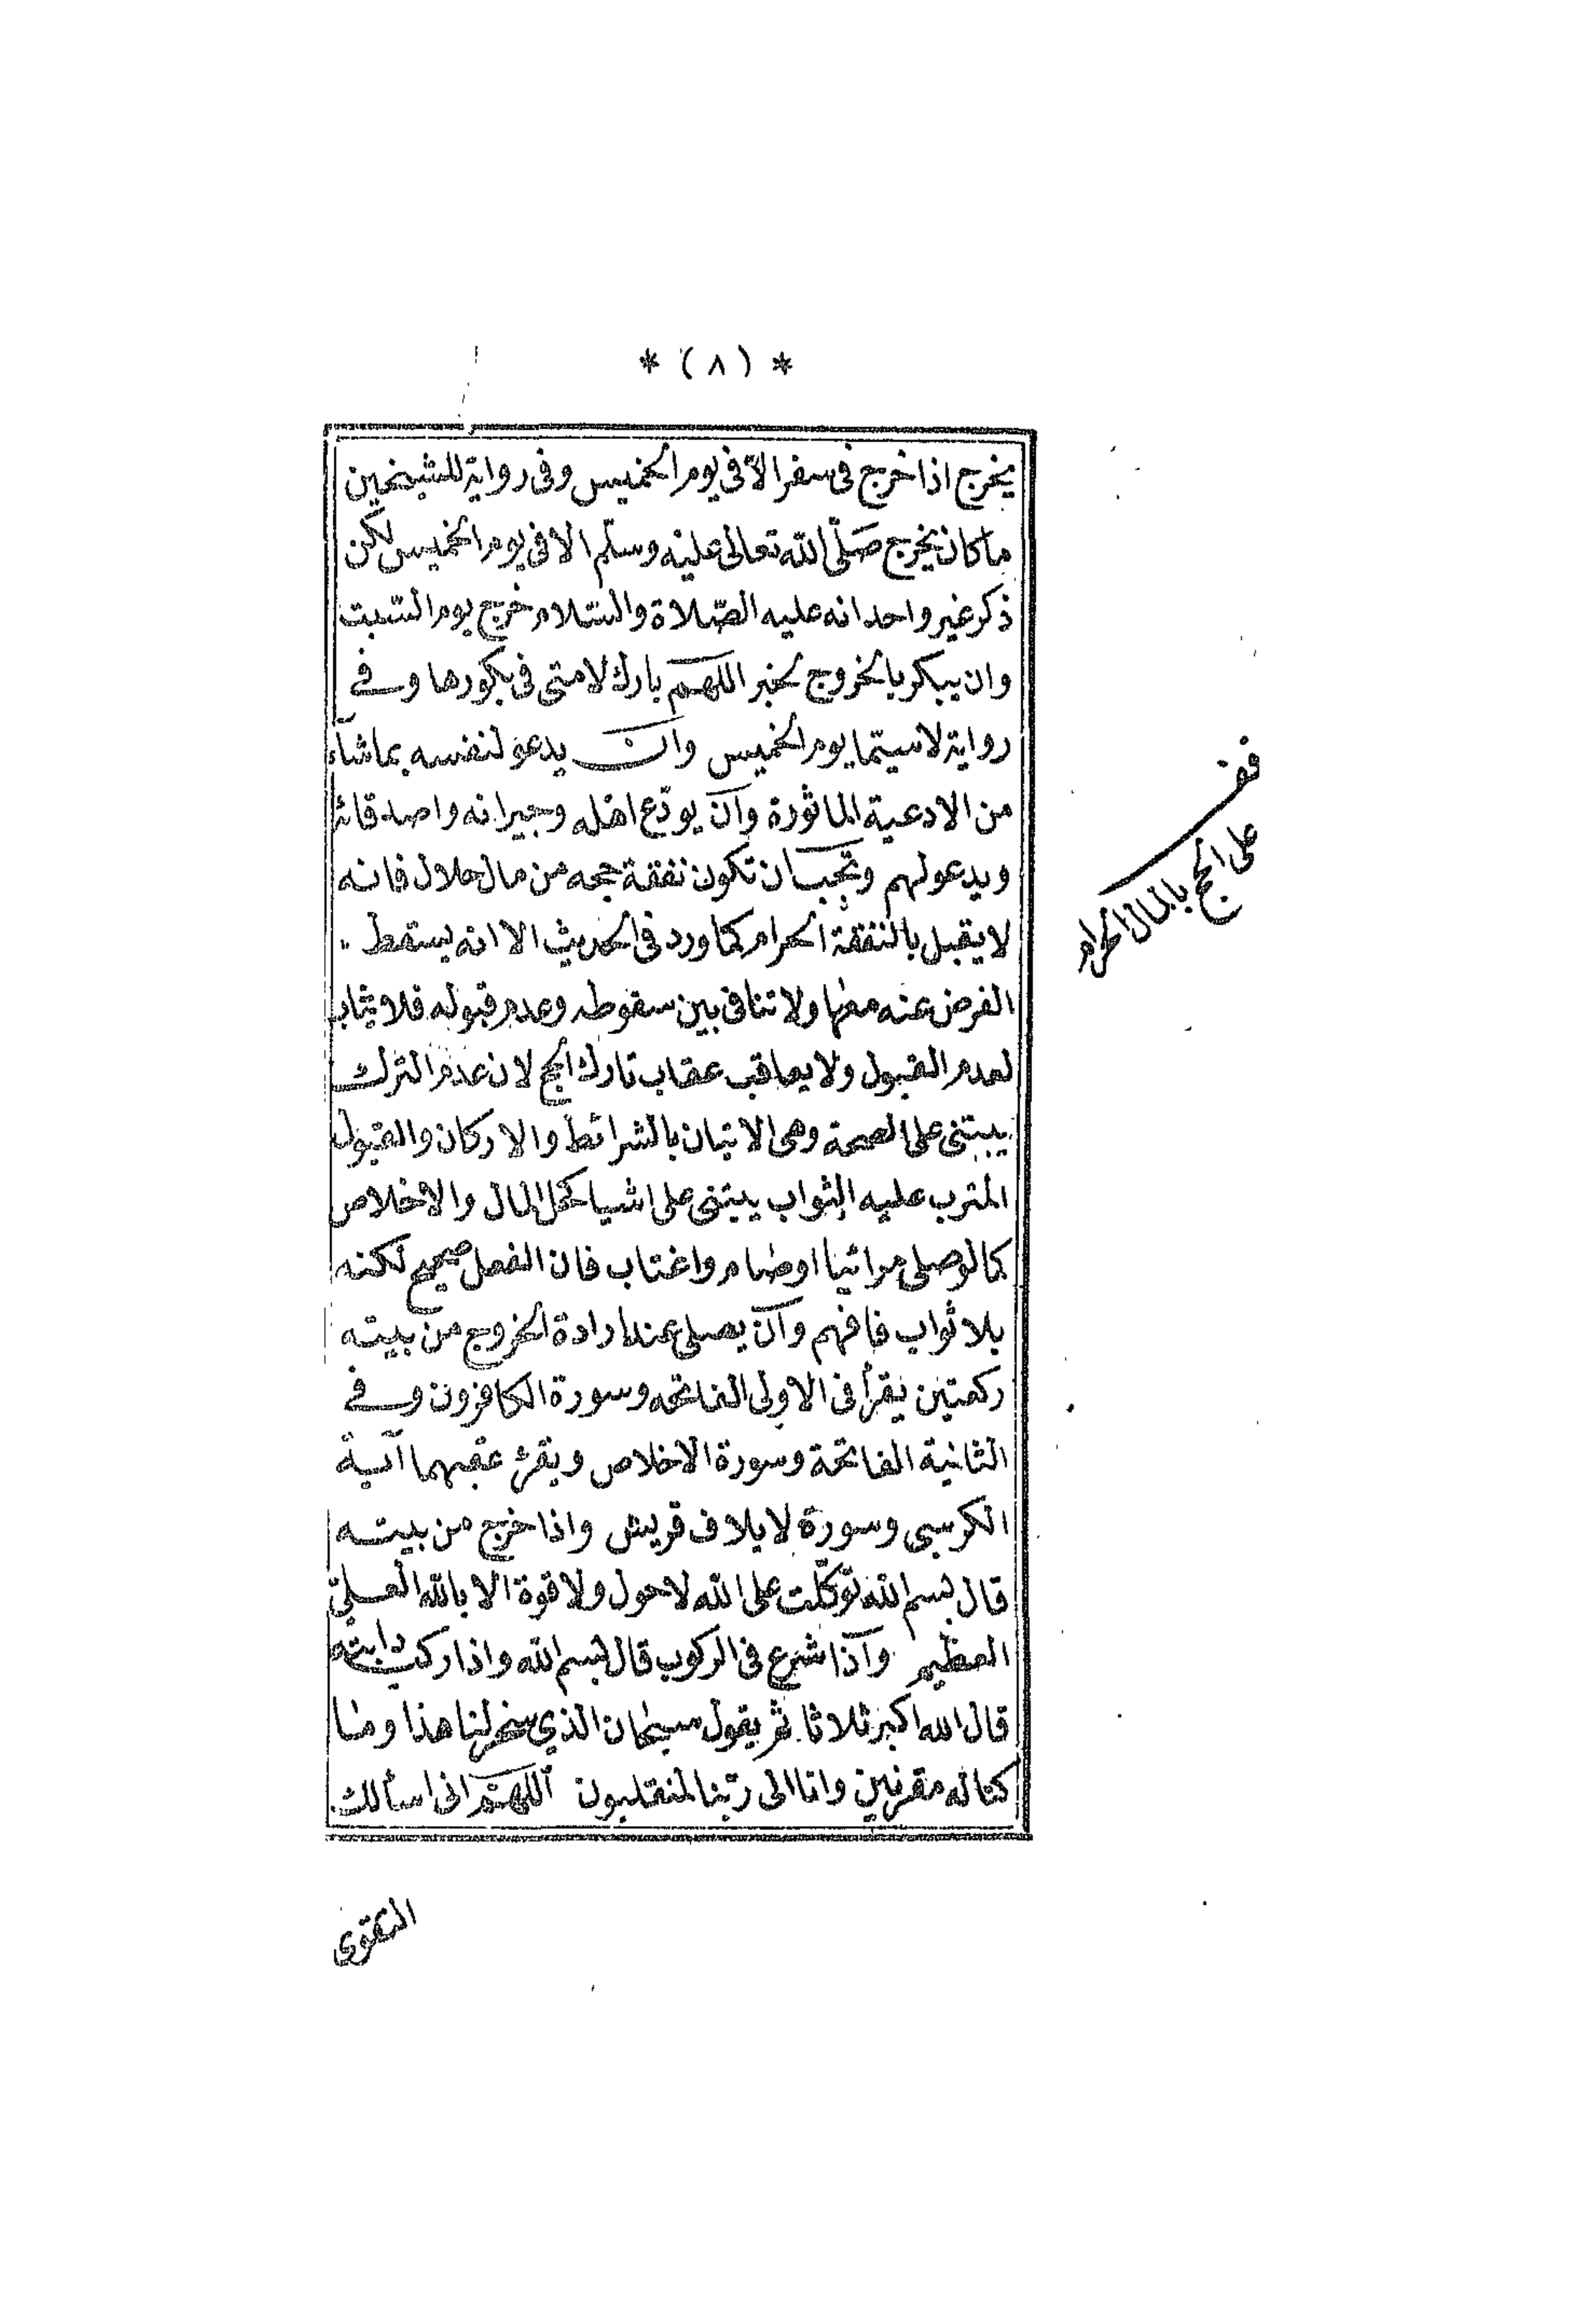 * ( ٨ ) *
يخرج اذا خرج فى سفر الّا فى يوم الخميس وفى رواية للشيخين
ما كان يخرج صَلّى الله تعالى عليه وسلّم الا فى يوم الخميس لكن
ذكر غير واحد انه عليه الصّلاة والسّلام خرج يوم السّبت
وان يبكر بالخروج لخبر اللهم بارك لامتى فى بكورها وفى
رواية لاسيّما يوم الخميس وان يدعو لنفسه بما شآء
من الادعية الماثورة وآن يودّع اهله وجيرانه واصدقائه
ويدعو لهم وتجب ان تكون نفقة حجه من مال حلال فانه
لا يقبل بالنفقة الحرام كما ورد فى الحديث الا انه يسقط
الفرض عنه معها ولا تنافى بين سقوطه وعدم قبوله فلا يثاب
لعدم القبول ولا يعاقب عقاب تارك الحج لان عدم الترك
يبتنى على الصحة وهى الاتيان بالشرائط والاركان والقبول
المترب عليه الثواب يبتنى على اشيا كحل المال والاخلاص
كما لو صلى مرائيا او صام واغتاب فان الفعل صحيح لكنه
بلا ثواب فافهم وآن يصلى عند ارادة الخروج من بيته
ركعتين يقرأ فى الاولى الفاتحه وسورة الكافرون وفى
الثانية الفاتحة وسورة الاخلاص ويقرئ عقبهما آية
الكرسى وسورة لايلاف قريش واذا خرج من بيته
قال بسم الله توكّلت على الله لاحول ولا قوة الا بالله العلىّ
العظيم وآذا شرع فى الركوب قال بسم الله واذا ركب دابته
قال الله اكبر ثلاثا ثم يقول سبحان الذي سخر لنا هذا وما
كنا له مقرنين وانا الى ربّنا لمنقلبون اللهمّ انى اسألك
قف
على الحج بالمال الحرام
التقوى